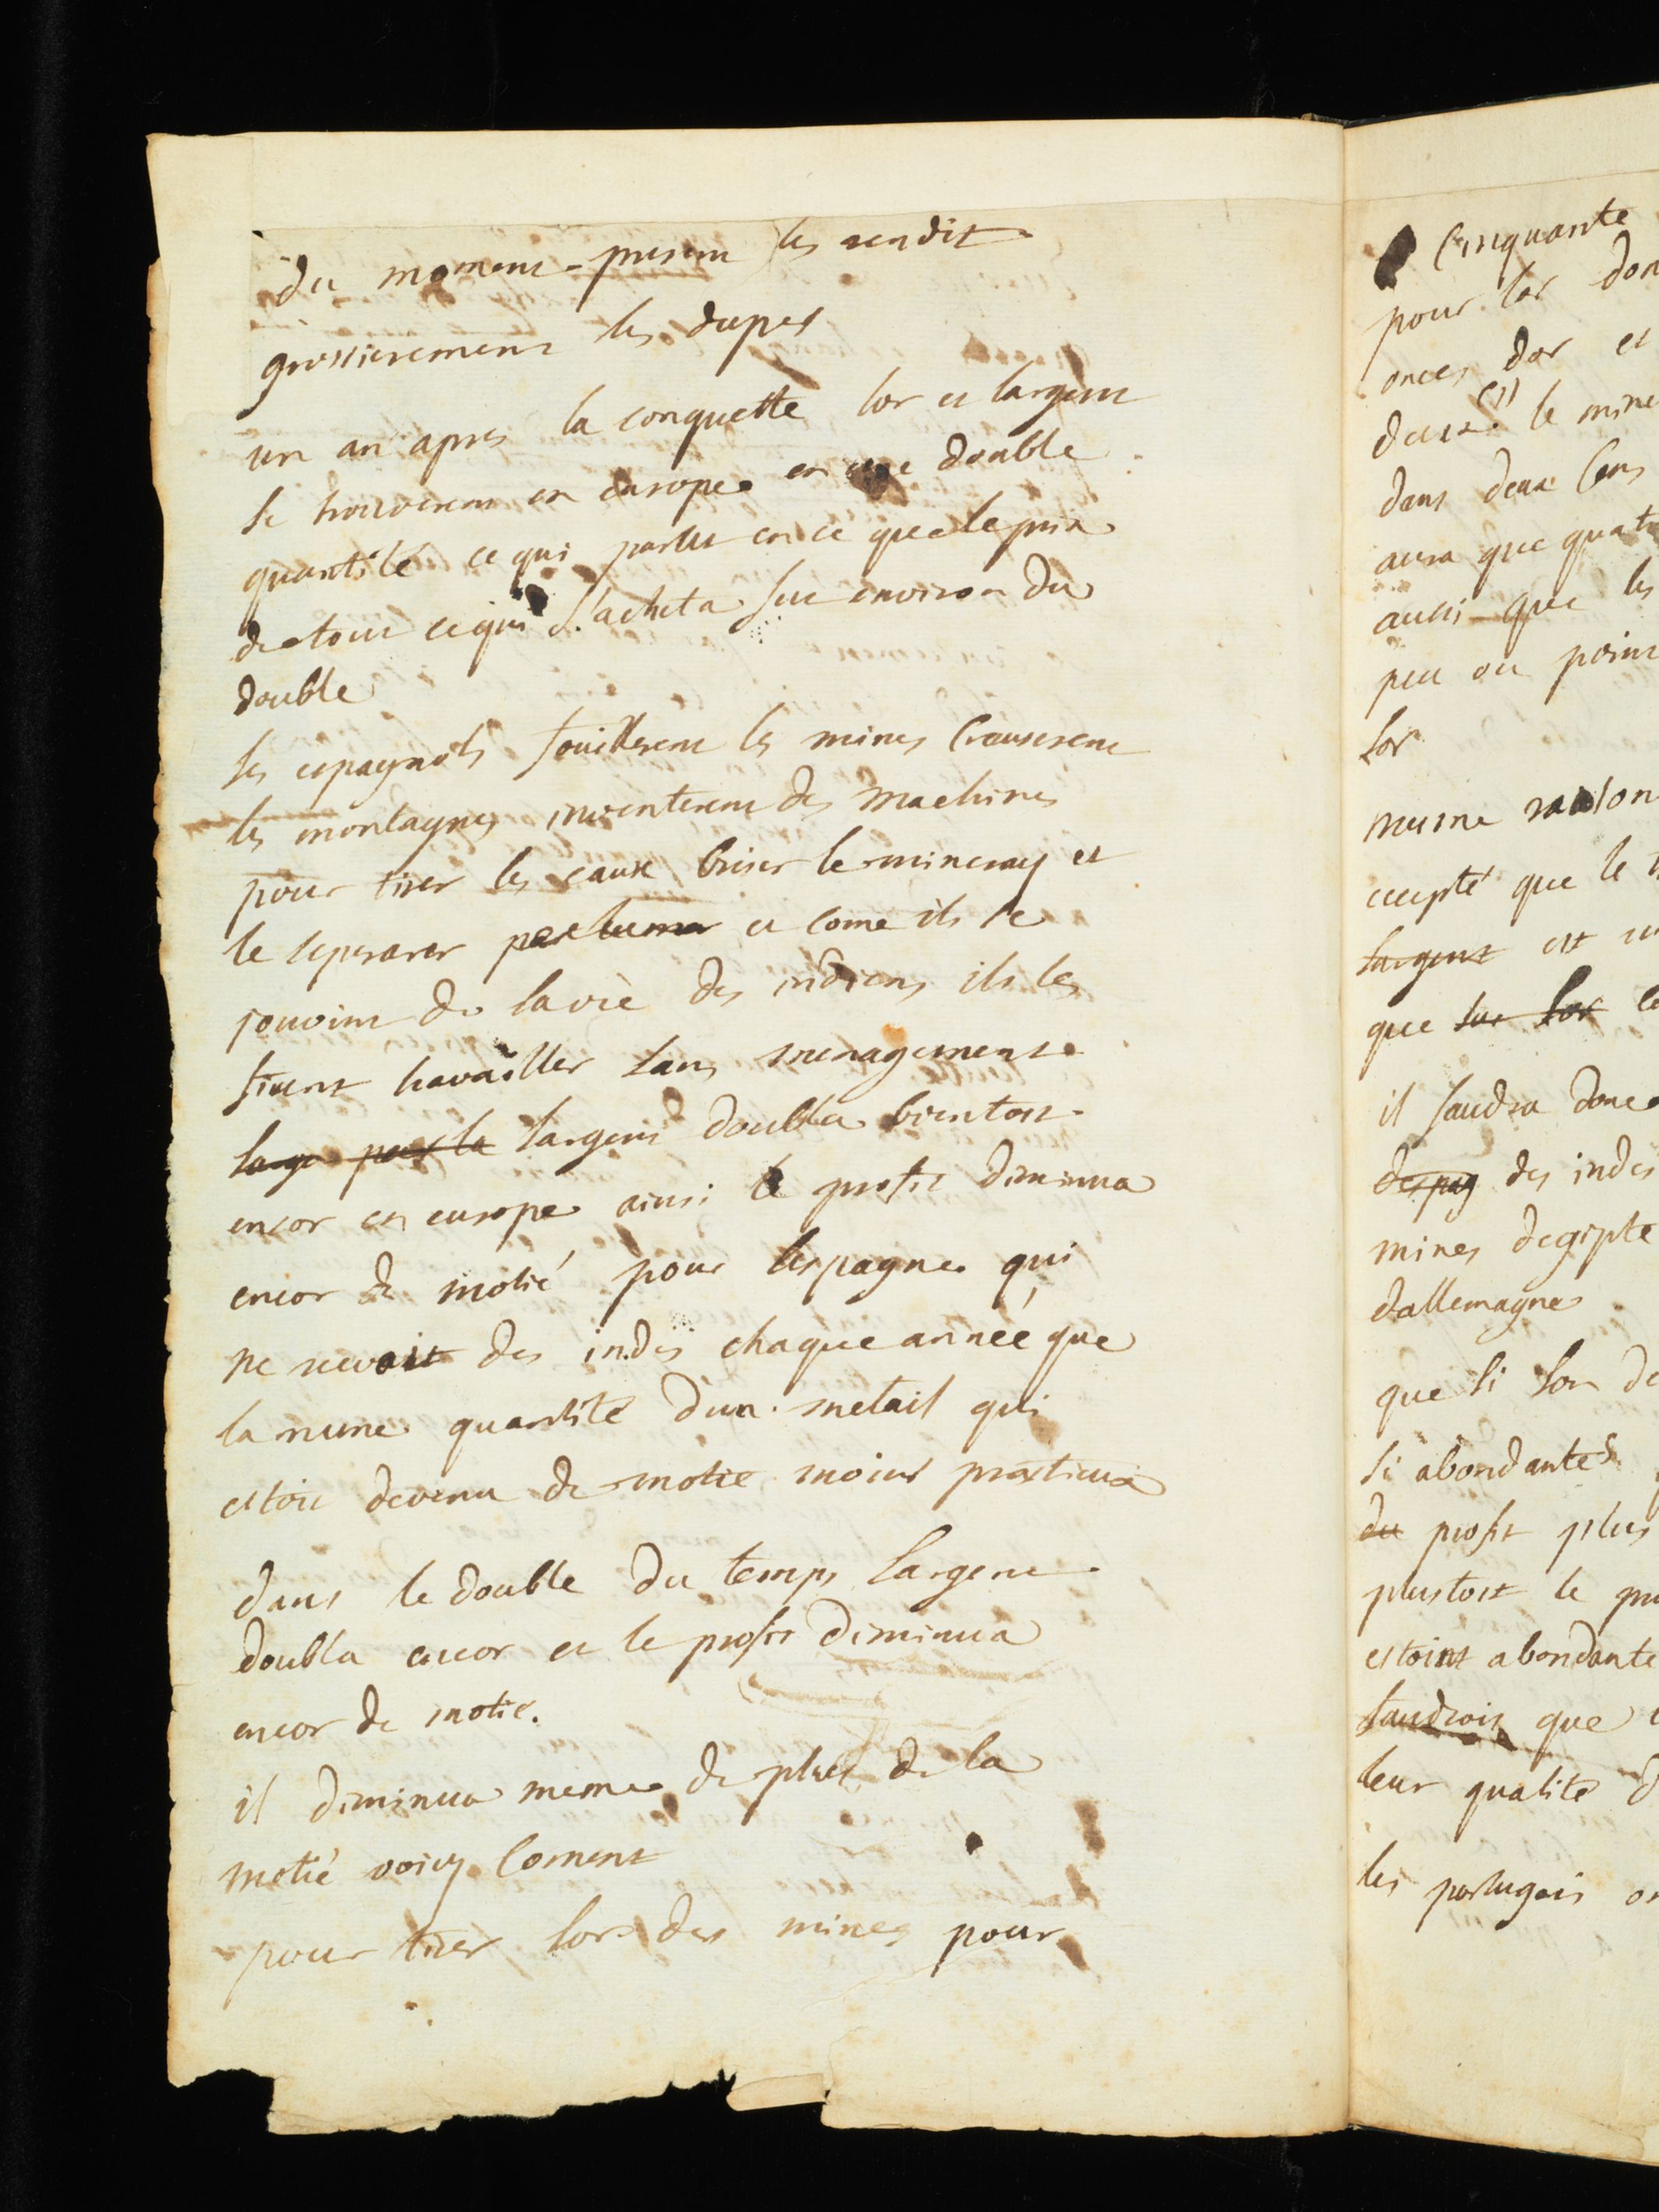 du moment present les rendit
grossierement les dupes
un an apres la conquette lor et largent
se trouverent en europe en une double
quantité ce qui parut en ce que le prix
de tout ce qui s'acheta fut environ du
double
les espagnols fouillerent les mines creuserent
les montagnes inventerent des machines
pour tirer les eaux briser le mineray et
le separer et come ils se
jouoint de la vie des indiens ils les
firent travailler sans menagement
large par la largent doubla bientost
encor en europe ainsi le profit diminua
encor de motié pour lespagne qui
ne recvoit des indes chaque année que
la mume quantité d'un metail qui
estoit devenu de motie moins pretieux
dans le double du temps largent
doubla encor et le profit diminua
encor de motié.
il diminua meme de plus de la
motié voicy coment
pour tirer lor des mines pour
cinquante
pour lor don
onces dor et
(1) le mine
dans deux cens
aura que quat
aussi que les
peu ou point
lor
mesme raison
ccepté que le
largent est
que sur lor
il faudra donc
despag des indes
mines degipte
dallemagne
que si lon de
si abondantes
du profit plus
plustost le
estoint abondante
faudroit que
leur qualité d
les portugais